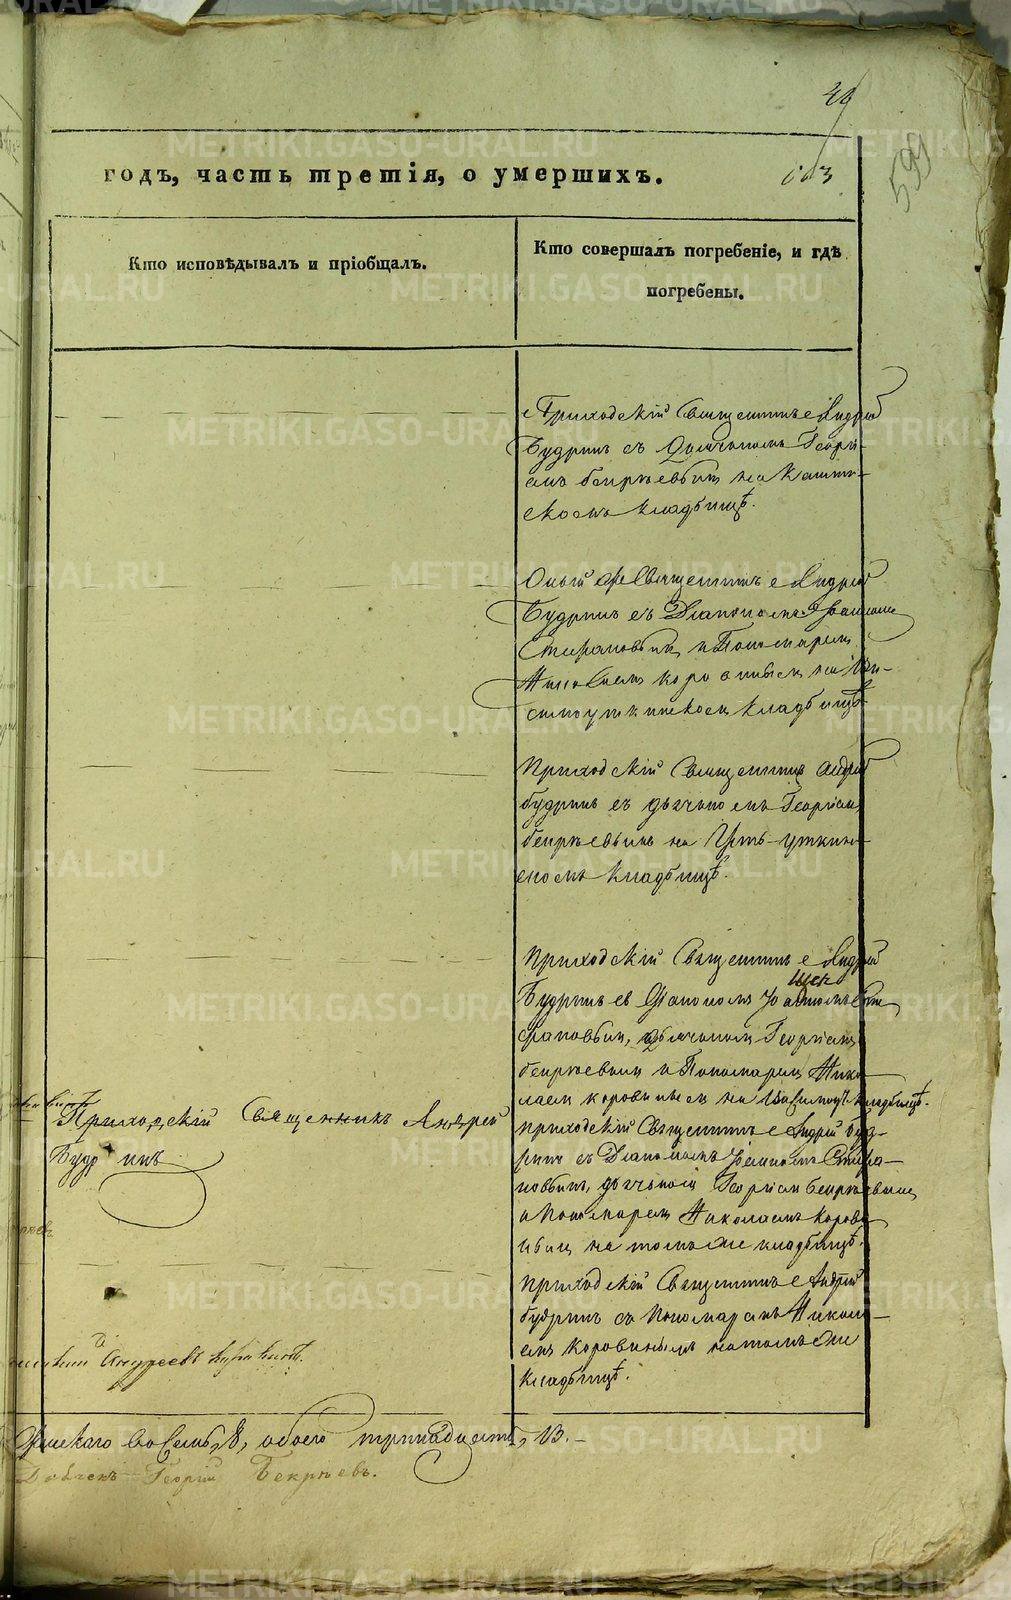 603
599
годъ, часть третія, о умершихъ.
Кто исповѣдывалъ и пріобщалъ.
Кто совершалъ погребеніе, и гдѣ
погребены.
Приходскій Священникъ Андрей
Будринъ съ Дьячкомъ Георгі-
емъ
скомъ кладбищѣ.
Оный же Священникъ Андрей
Будринъ съ Діакономъ Іоанномъ
Стефановымъ и Пономаремъ
Николаемъ Коровинымъ на
кладбищѣ
Приходскій Священникъ Андрей
Будринъ съ дьячкомъ Георгіемъ
на Усть-Уткин-
скомъ кладбищѣ.
Приходскій Священникъ Андрей
Будринъ съ Діакономъ Іоанномъ Сте-
фановымъ, дьячкомъ Георгіемъ
и Пономаремъ Нико-
лаемъ Коровинымъ на кладбищѣ.
Приходскій Священникъ Андрей
Будринъ
Приходскій Священникъ Андрей Буд-
ринъ съ Діакономъ Іоанномъ Стефа-
новымъ, дьячкомъ Георгіемъ
и Пономаремъ Николаемъ Корови-
нымъ на томъ же кладбищѣ.
Приходскій Священникъ Андрей
Будринъ съ Пономаремъ Никола-
емъ Коровинымъ на томъ же
кладбищѣ.
Андреевъ
женскаго восемь, 8, обоего тринадцать, 13.
Дьячекъ Георгій Бекрѣевъ.
METRIKI.GASO-URAL.RU